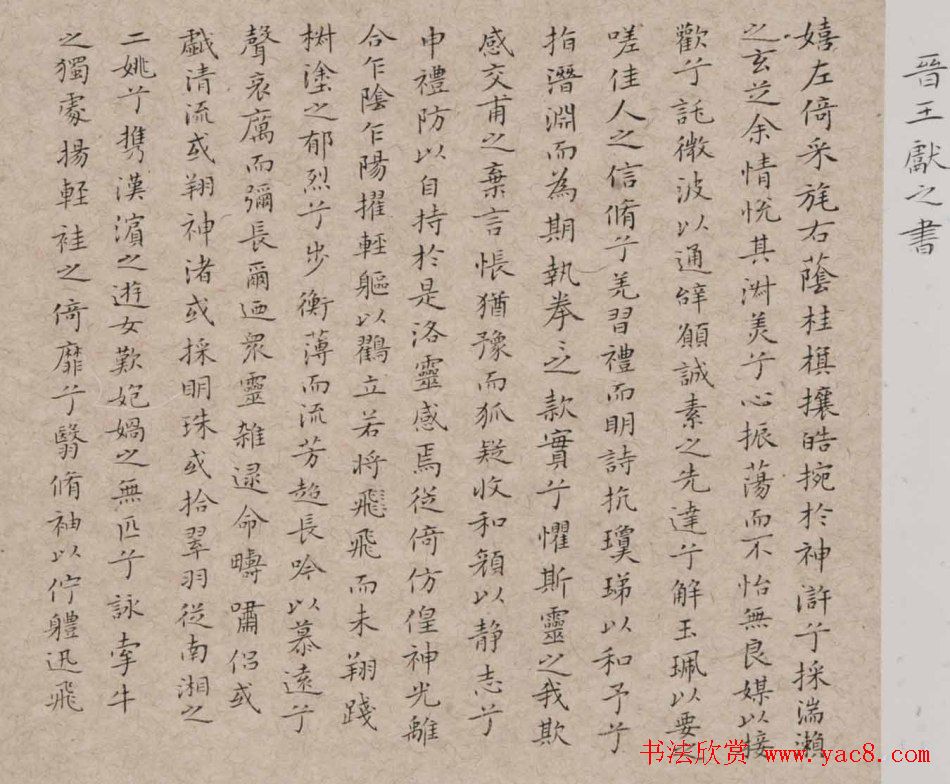 晉王獻之書
嬉左倚采旄右蔭桂旗攘皓捥於神滸兮採湍瀨
之玄芝余情悅其淋美兮心振蕩而不怡無良媒以接
歡兮託微波以通辭願誠素之先達兮解玉珮以要之
嗟佳人之信脩兮羌習禮而明詩抗瓊珶以和予兮
指潛淵而為期執拳〻之款實兮懼斯靈之我欺
感交甫之棄言悵猶豫而狐疑收和顏以静志兮
申禮防以自持於是洛靈感焉從倚仿偟神光離
合乍陰乍陽擢輕軀以鸖立若將飛飛而未翔踐
椒塗之郁烈兮步衡薄而流芳超長吟以慕遠兮
聲哀厲而彌長爾迺眾靈雜遝命疇嘯侶或
戲清流或翔神渚或採明珠或拾翠羽從南湘之
二姚兮攜漢濱之遊女歎妑媧之無匹兮詠牽牛
之獨處揚輕袿之倚靡兮翳脩袖以佇體迅飛
书法欣赏 www.yac8.com